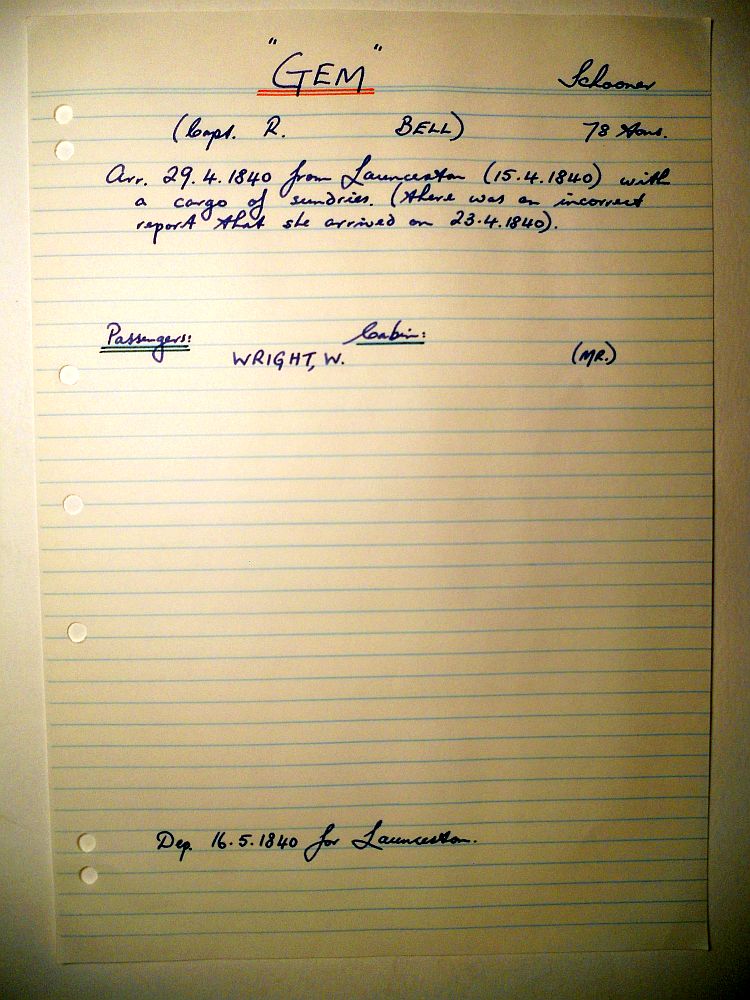 "GEM" Schooner
(Capt. R. BELL) 78 tons.
Arr. 29.4.1840 from Launceston (15.4.1840) with
a cargo of sundries. (there was an incorrect
report that she arrived on 23.4.1840).
Passengers: Cabin:
WRIGHT, W. (MR.)
Dep. 16.5.1840 for Launceston.